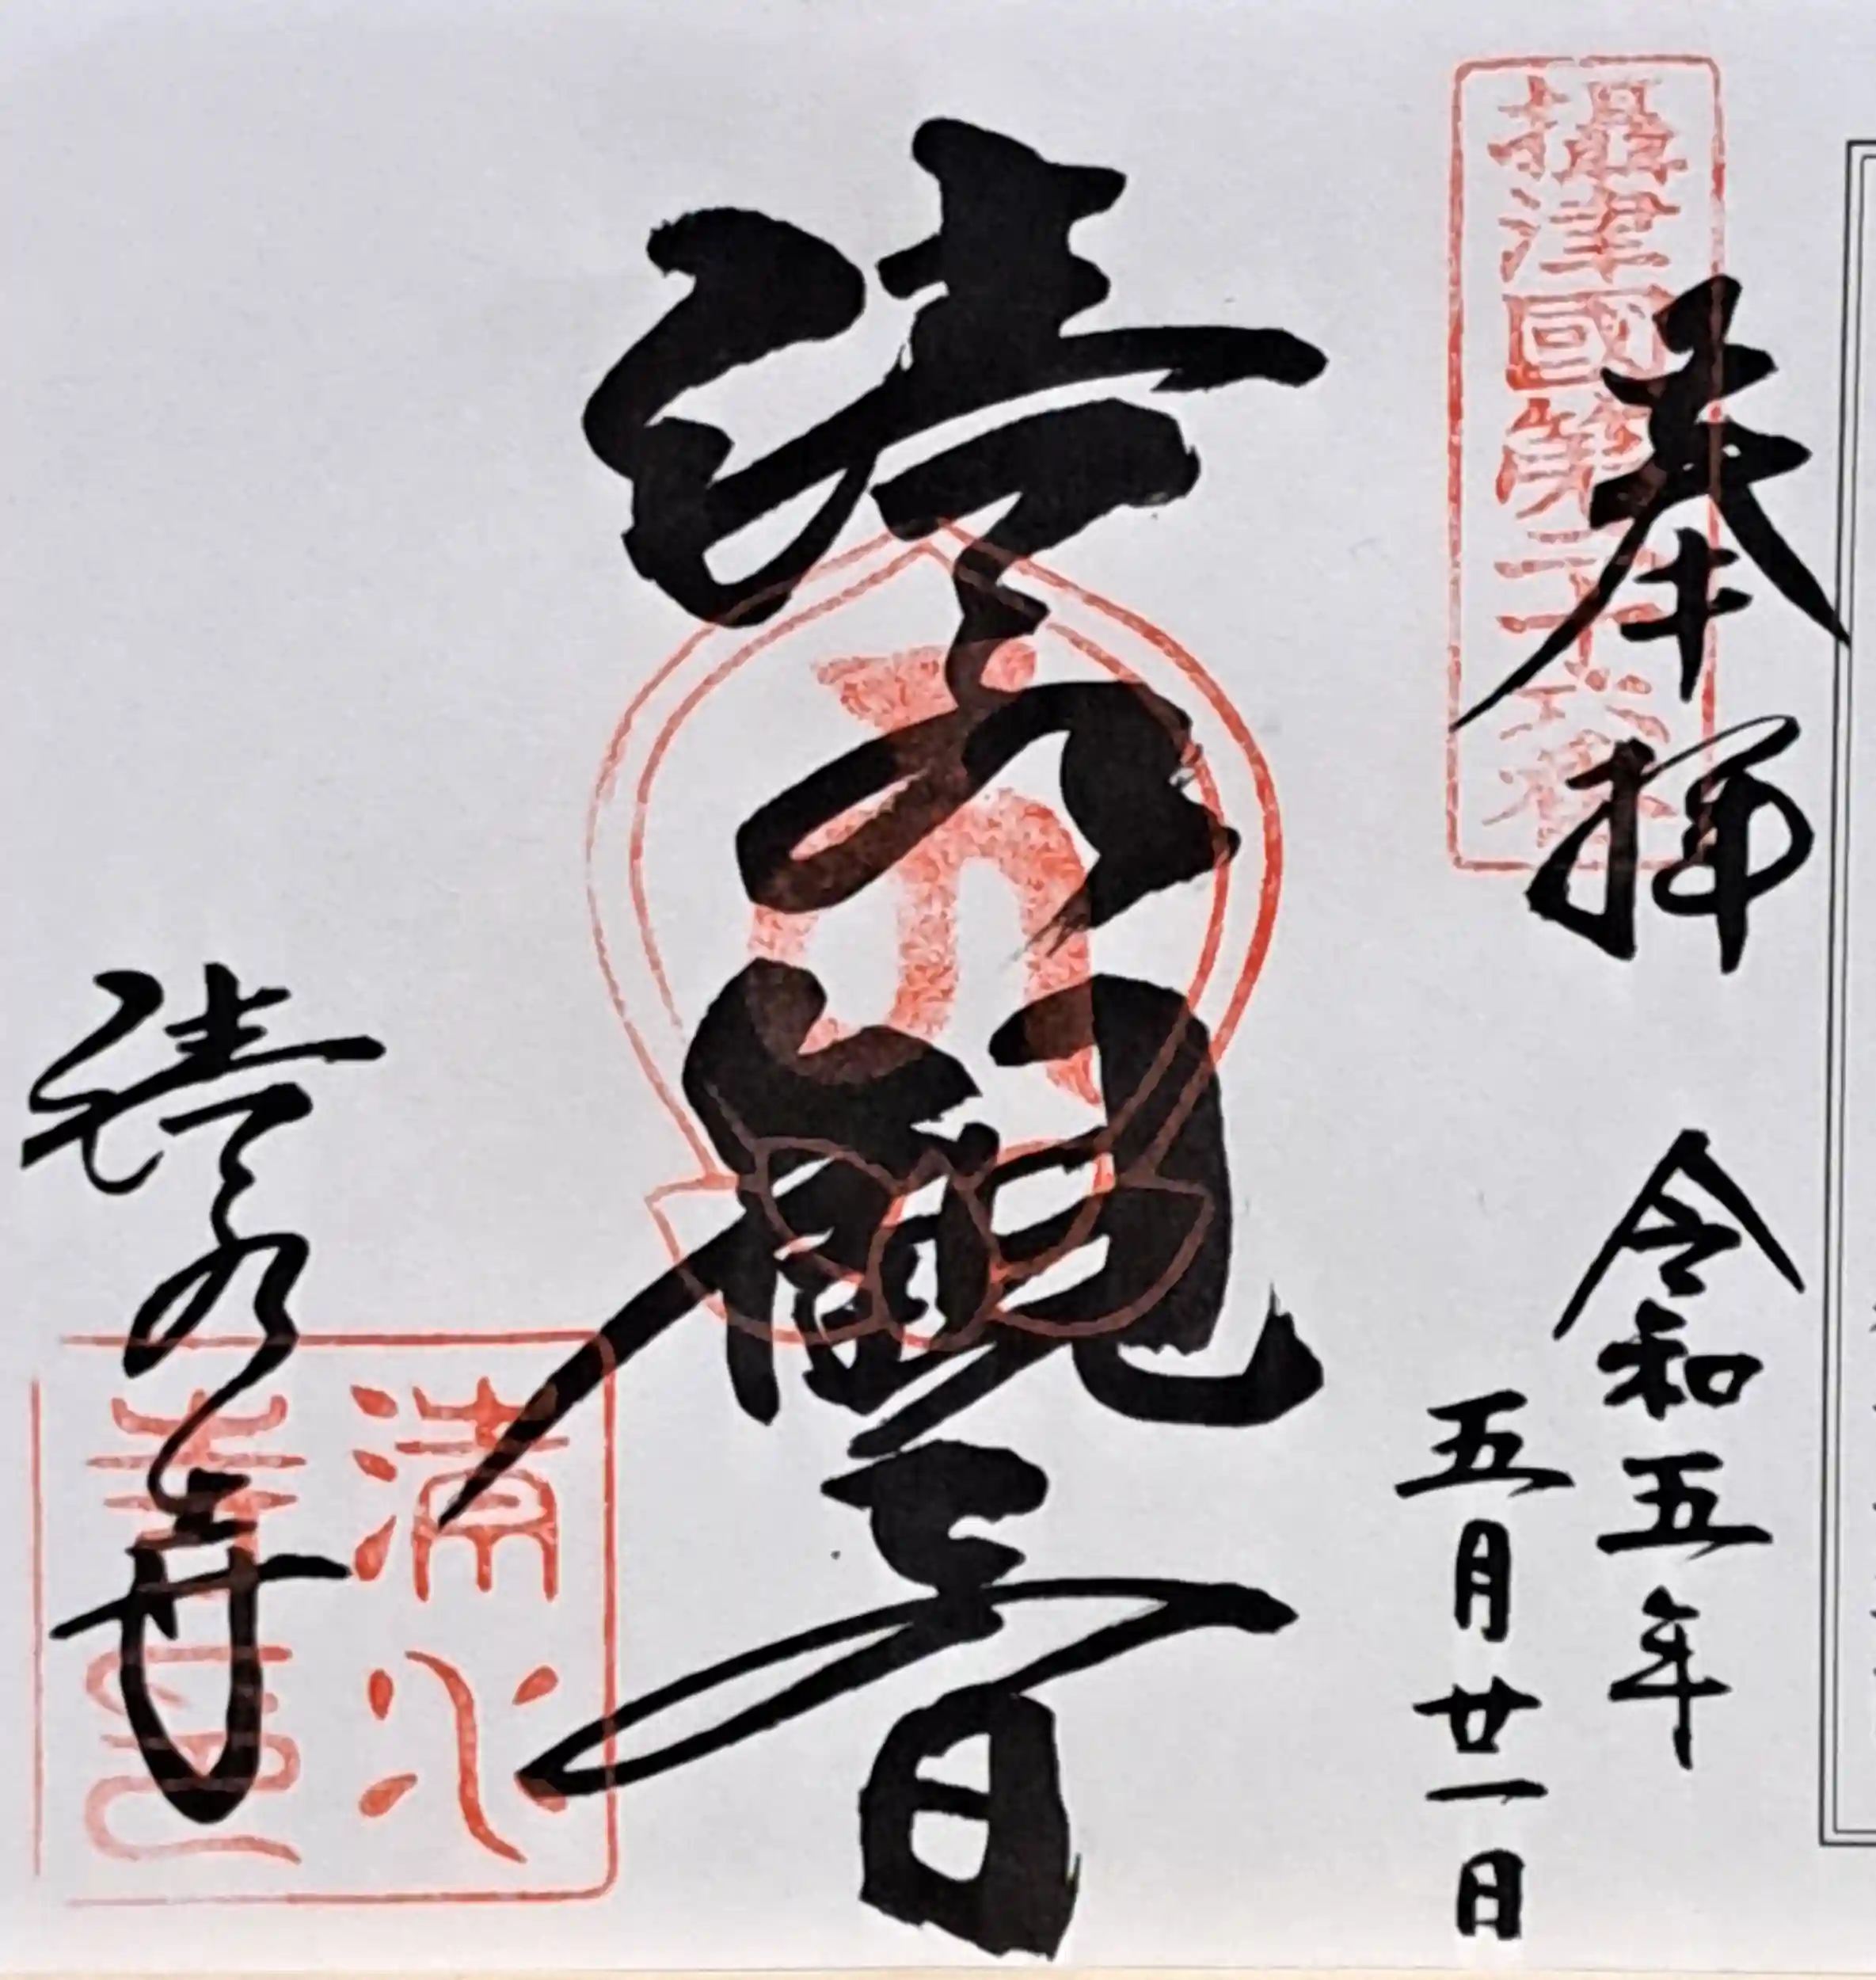 奉拝
攝津國第二十六番
令和五年
五月廿一日
清水観音
清水寺
清水寺印